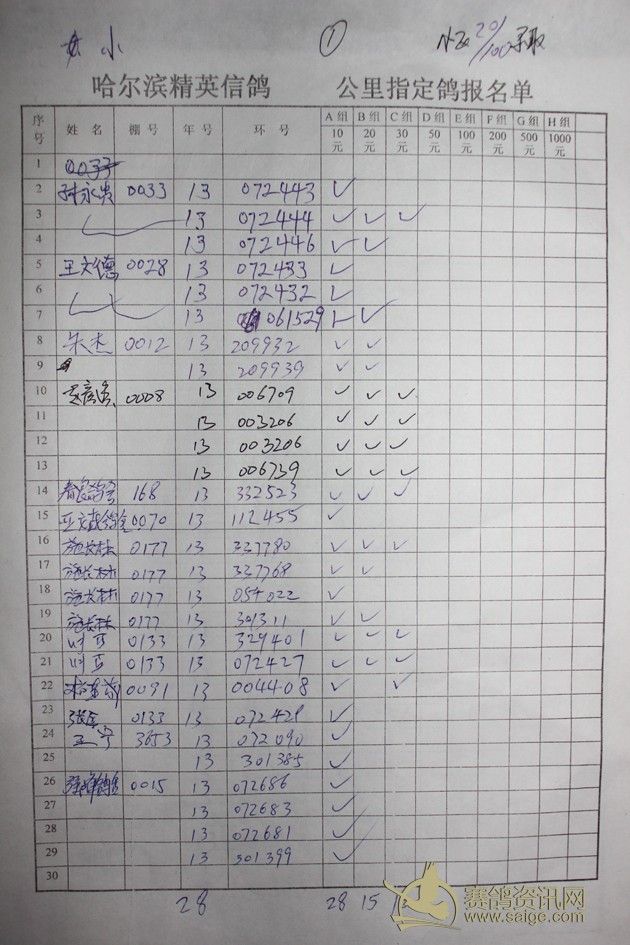 小 ① 20/100
哈尔滨精英信鸽 公里指定鸽报名单
序号 姓名 棚号 年号 环号 A组10元 B组20元 C组30元 D组50元 E组100元 F组200元 G组500元 H组1000元
1 0033
2 0033 13 072443 ✓
3 13 072444 ✓ ✓ ✓
4 13 072446 ✓ ✓
5 王文德 0028 13 072433 ✓
6 13 072432 ✓
7 13 061529 ✓ ✓
8 朱杰 0012 13 209932 ✓ ✓
9 13 209939 ✓ ✓
10 0008 13 006709 ✓ ✓ ✓
11 13 003206 ✓ ✓ ✓
12 13 003206 ✓ ✓ ✓
13 13 006739 ✓ ✓ ✓
14 168 13 332523 ✓ ✓ ✓
15 0070 13 112455 ✓
16 施长林 0177 13 337780 ✓ ✓ ✓
17 施长林 0177 13 337768 ✓ ✓
18 施长林 0177 13 054022 ✓
19 施长林 0177 13 301311 ✓ ✓
20 0133 13 329401 ✓ ✓ ✓
21 0133 13 072427 ✓ ✓ ✓
22 0091 13 004408 ✓ ✓
23 0133 13 072429 ✓
24 王宁 3653 13 072090 ✓
25 13 301385 ✓
26 0015 13 072686 ✓
27 13 072683 ✓
28 13 072681 ✓
29 13 301399 ✓
30
28 28 15
赛鸽资讯网
www.saige.com